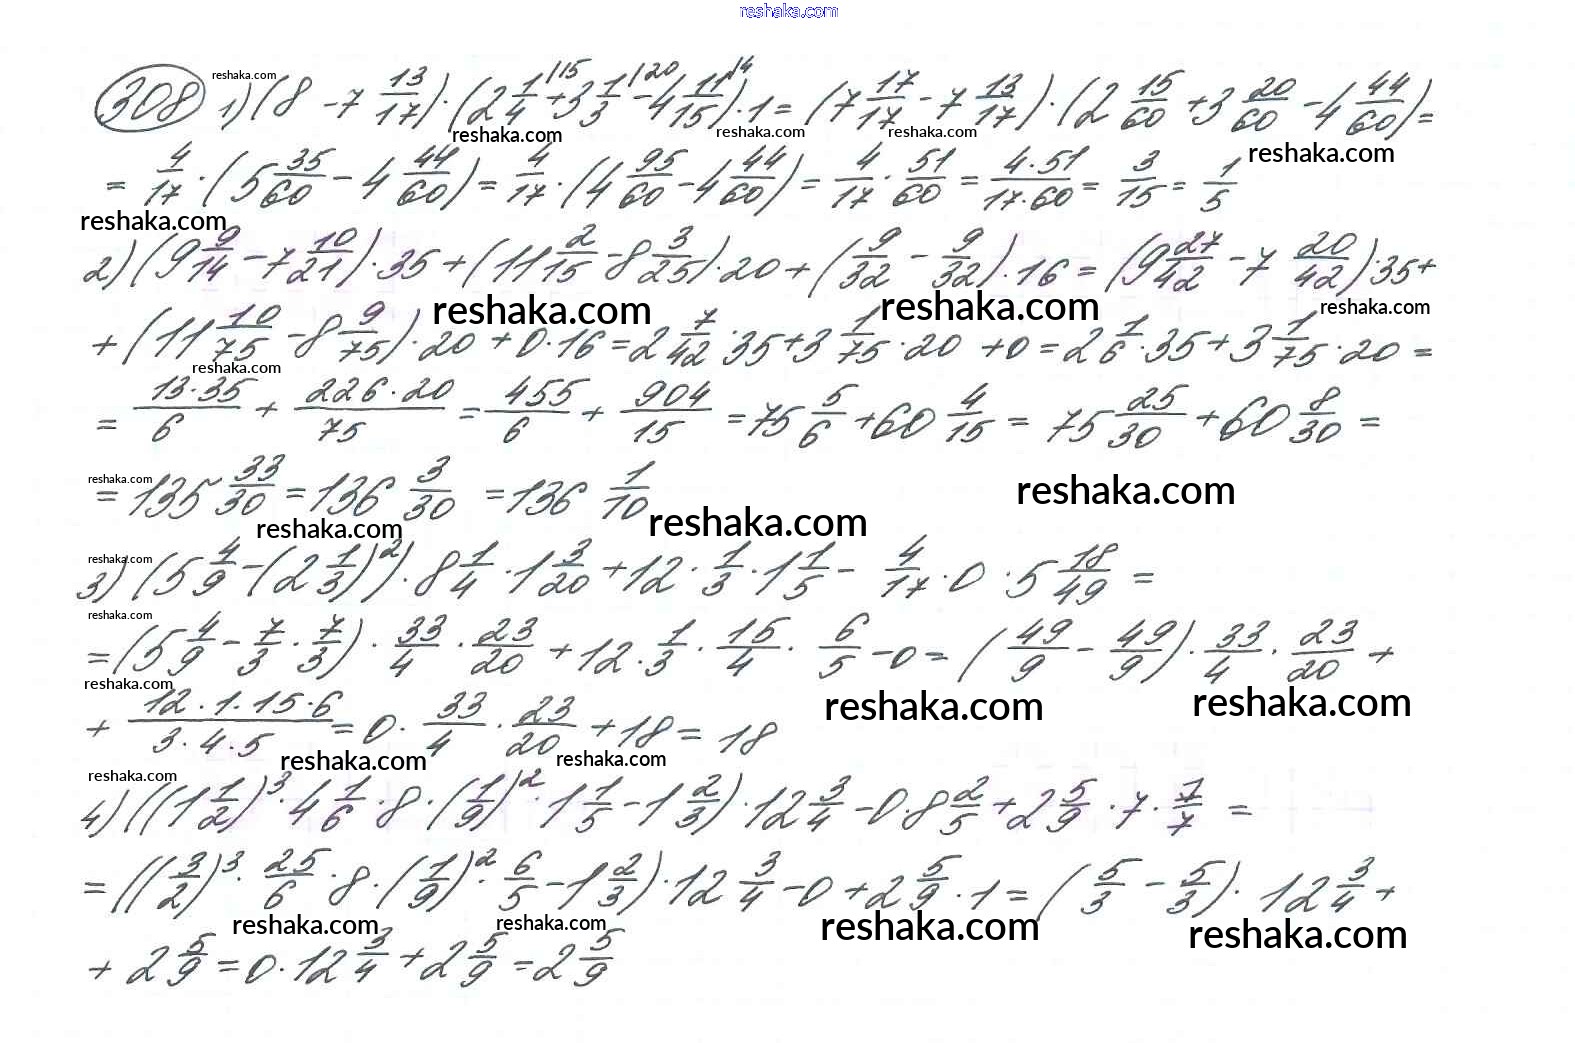 reshaka.com
308 reshaka.com 1) (8 - 7 13/17) · (2 1/4 |15 + 3 1/3 |20 - 4 11/15 |4) · 1 = (7 17/17 - 7 13/17) · (2 15/60 + 3 20/60 - 4 44/60) =
reshaka.com reshaka.com reshaka.com reshaka.com
= 4/17 · (5 35/60 - 4 44/60) = 4/17 · (4 95/60 - 4 44/60) = 4/17 · 51/60 = 4·51/17·60 = 3/15 = 1/5
reshaka.com
2) (9 9/14 - 7 10/21) · 35 + (11 2/15 - 8 3/25) · 20 + (9/32 - 9/32) · 16 = (9 27/42 - 7 20/42) · 35 +
reshaka.com reshaka.com reshaka.com
+ (11 10/75 - 8 9/75) · 20 + 0 · 16 = 2 7/42 · 35 + 3 1/75 · 20 + 0 = 2 1/6 · 35 + 3 1/75 · 20 =
reshaka.com
= 13·35/6 + 226·20/75 = 455/6 + 904/15 = 75 5/6 + 60 4/15 = 75 25/30 + 60 8/30 =
reshaka.com
= 135 33/30 = 136 3/30 = 136 1/10 reshaka.com
reshaka.com reshaka.com
reshaka.com
3) (5 4/9 - (2 1/3)²) · 8 1/4 · 1 3/20 + 12 · 1/3 · 1 1/5 - 4/17 · 0 · 5 18/49 =
reshaka.com
= (5 4/9 - 7/3 · 7/3) · 33/4 · 23/20 + 12 · 1/3 · 15/4 · 6/5 - 0 = (49/9 - 49/9) · 33/4 · 23/20 +
reshaka.com reshaka.com reshaka.com
+ 12·1·15·6/3·4·5 = 0 · 33/4 · 23/20 + 18 = 18
reshaka.com reshaka.com
reshaka.com
4) ((1 1/2)³ · 4 1/6 · 8 · (1/9)² · 1 1/5 - 1 2/3) · 12 3/4 - 0 · 8 2/5 + 2 5/9 · 7 · 7/7 =
= ((3/2)³ · 25/6 · 8 · (1/9)² · 6/5 - 1 2/3) · 12 3/4 - 0 + 2 5/9 · 1 = (5/3 - 5/3) · 12 3/4 +
reshaka.com reshaka.com reshaka.com reshaka.com
+ 2 5/9 = 0 · 12 3/4 + 2 5/9 = 2 5/9